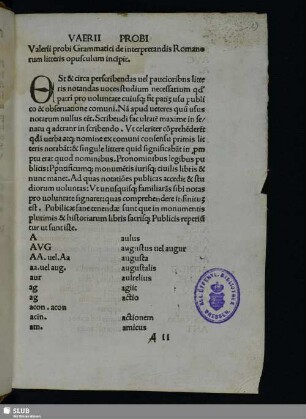 VAERII PROBI
Valerii probi Grammatici de interpretandis Romanorum litteris opusculum incipit.
Est & circa perscribendas uel paucioribus litteris notandas uoces studium necessarium qd
partī pro uoluntate cuiusq; fit partī usu publico & obseruatione comuni. Nā apud ueteres quū usus
notarum nullus eēt. Scribendi facultatē maxime in senatu q aderant in scribendo. Vt celeriter cōprehēderēt
qdā uerba atq; nomina ex comuni consensu primis litteris notabāt: & singule litterę quid significabāt in
promptu erat
quod nominibus. Pronominibus legibus publicis: Pontificumq; monumētis iurisq; ciuilis libris &
nunc manet. Ad quas notatiōes publicas accessit & studiorum uoluntas: Vt unusquisq; familiarēs sibi notas
pro uoluntate signaret: quas comprehendere infinitum
est. Publicę sane tenendę: sunt quę in monumentis
plurimis & historiarum libris sacrisq; Publicis reperiūtur
ut sunt istę.
A aulus
AVG augustus uel augur
AA. uel. Aa augusta
aa. uel aug. augustalis
aur aulrelius
ag agiit
ag actio
acon. acon
acin. actionem
am. amicus
A II
BIBLIOTHEK
DRESDEN
SLUB
Wir führen Wissen.